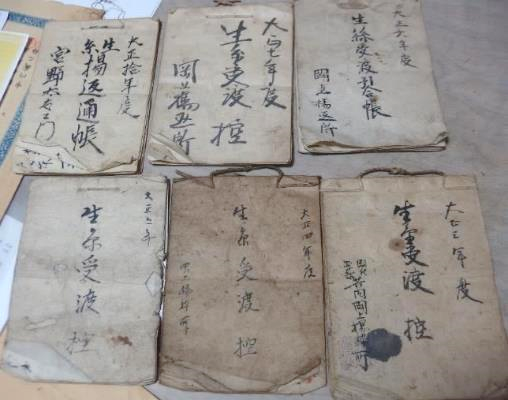 大正拾年度
生絲揚返通帳
大正七年度
生糸受渡控
岡上揚返所
大正六年度
生絲受渡
岡上揚返所
生糸受渡控
大正四年度
生糸受渡控
岡上揚返所
大正三年度
生糸受渡控
岡上揚返所